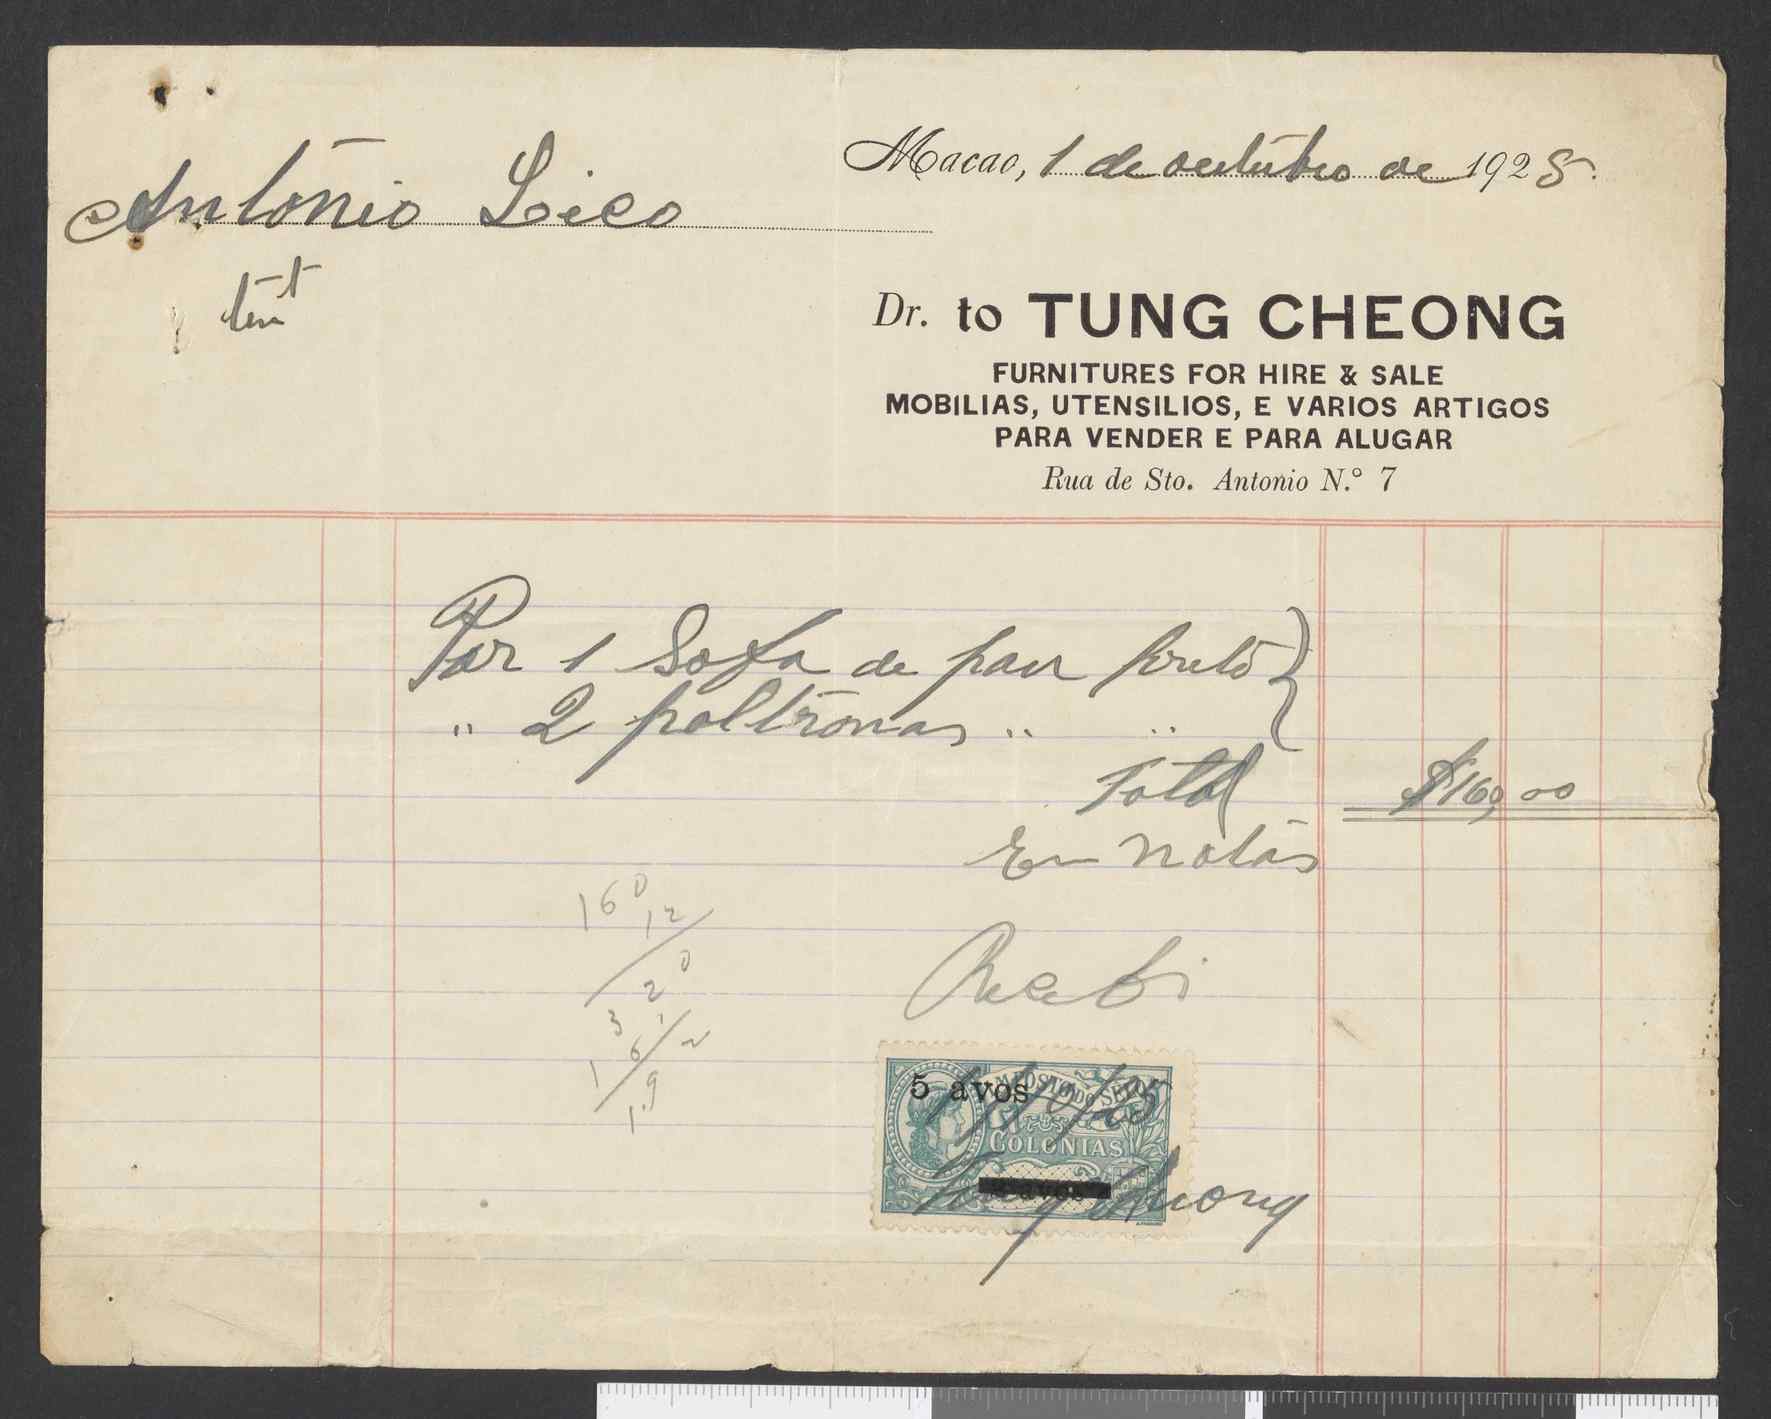 Macao, 1 de outubro de 1925.
António Lico
Dr. to TUNG CHEONG
FURNITURES FOR HIRE & SALE
MOBILIAS, UTENSILIOS, E VARIOS ARTIGOS
PARA VENDER E PARA ALUGAR
Rua de Sto. Antonio N.º 7
Por 1 Sofa de pau preto
" 2 poltronas " "
Total $160,00
Em notas
160
12
20
Recebi
5 avos
IMPOSTO DO SELO
1/10/25
COLONIAS
avos
Tung Cheong